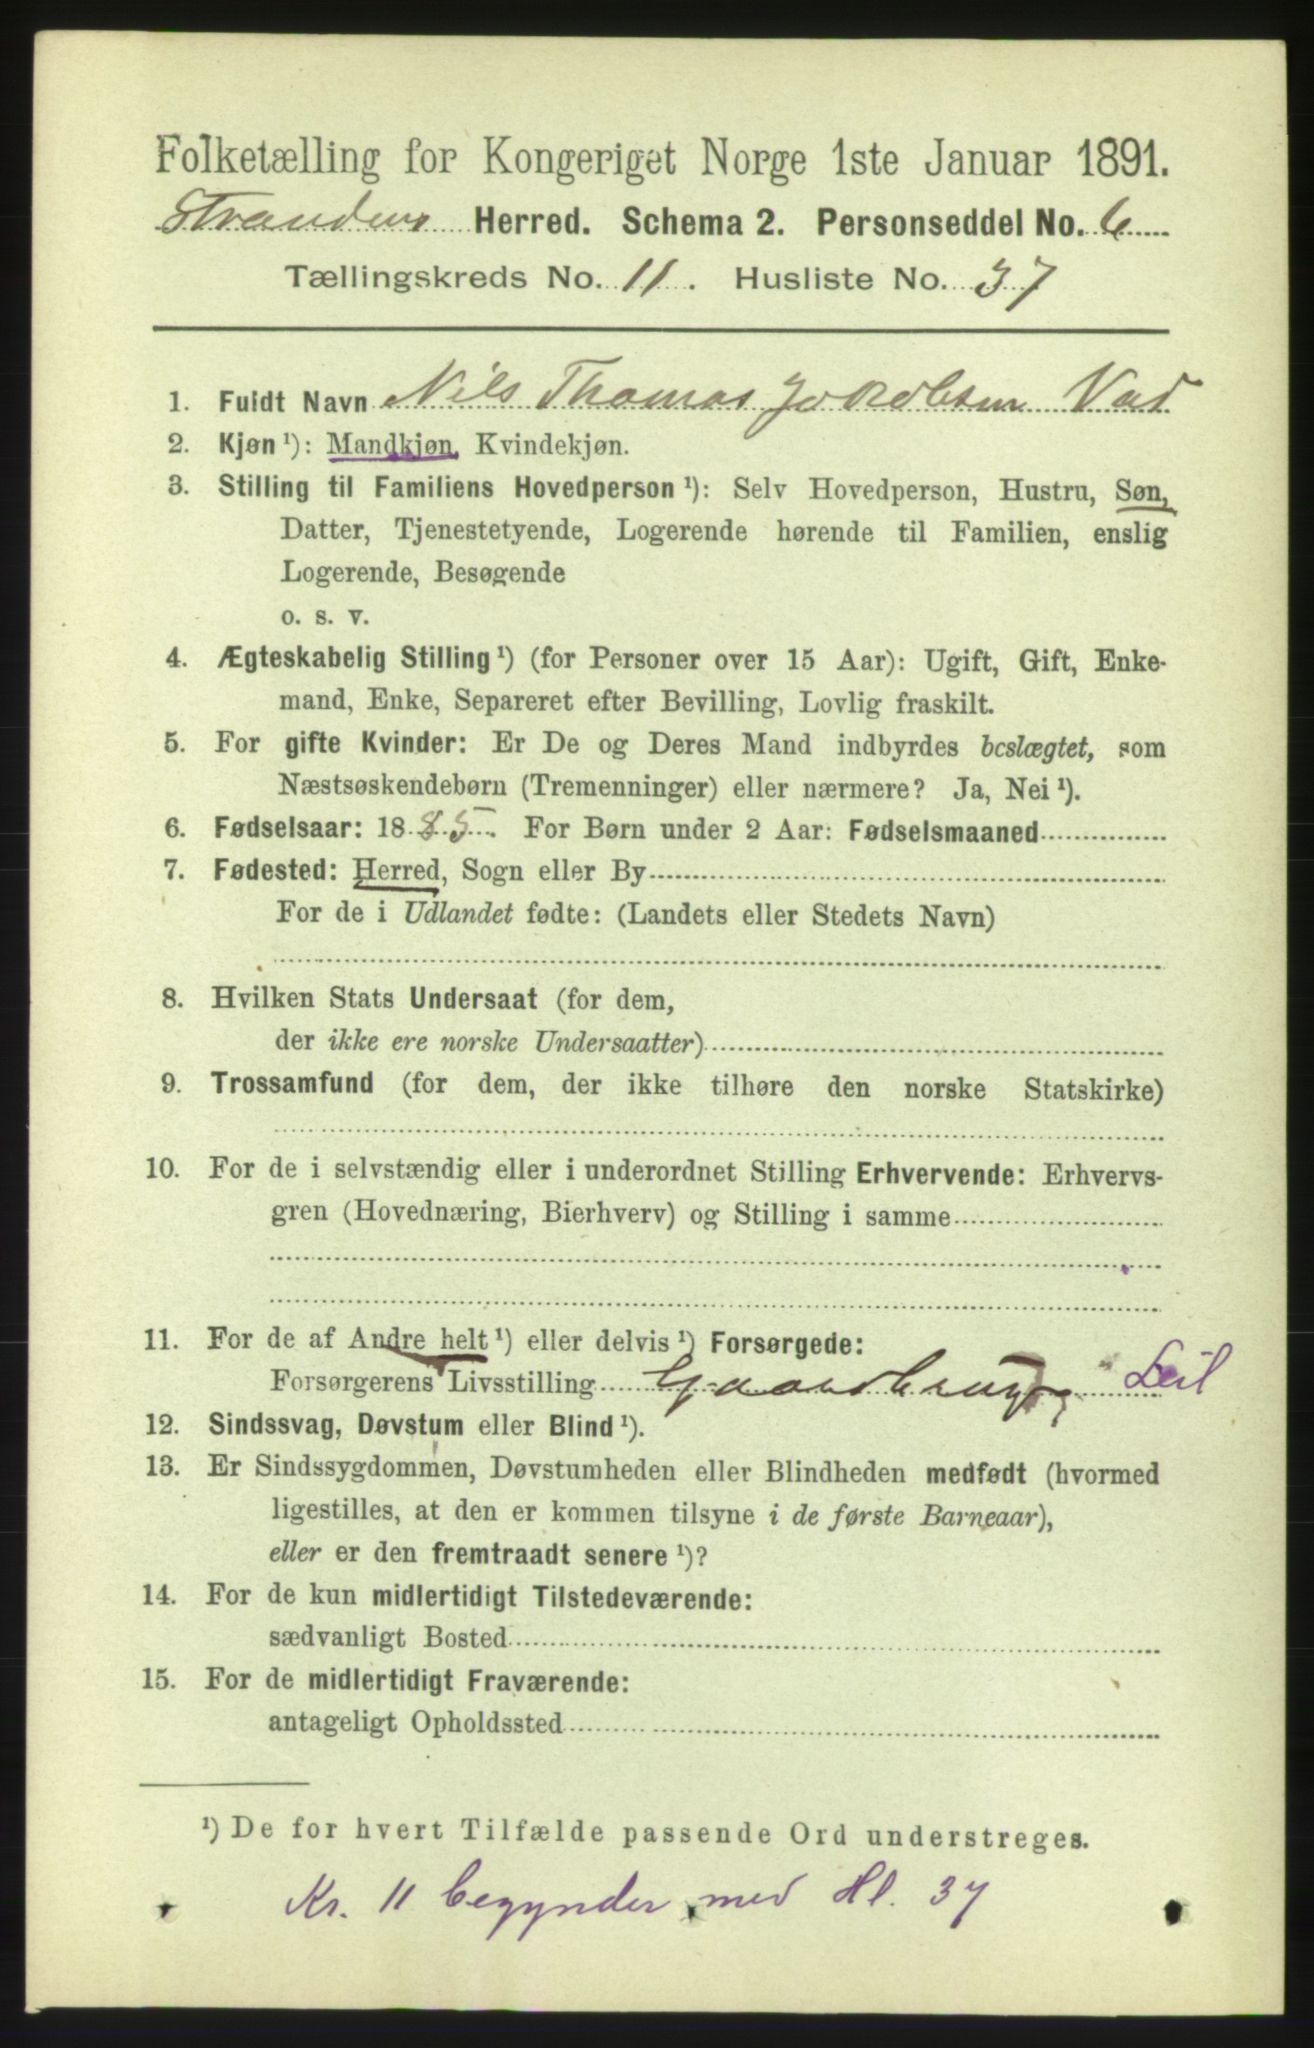 Folketælling for Kongeriget Norge 1ste Januar 1891.
Stranden Herred. Schema 2. Personseddel No. 6
Tællingskreds No. 11. Husliste No. 37
1. Fuldt Navn Nils Thomas Jakobsen Vad
2. Kjøn ¹): Mandkjøn, Kvindekjøn.
3. Stilling til Familiens Hovedperson ¹): Selv Hovedperson, Hustru, Søn,
Datter, Tjenestetyende, Logerende hørende til Familien, enslig
Logerende, Besøgende
o. s. v.
4. Ægteskabelig Stilling ¹) (for Personer over 15 Aar): Ugift, Gift, Enke-
mand, Enke, Separeret efter Bevilling, Lovlig fraskilt.
5. For gifte Kvinder: Er De og Deres Mand indbyrdes beslægtet, som
Næstsøskendebørn (Tremenninger) eller nærmere? Ja, Nei ¹).
6. Fødselsaar: 1885. For Børn under 2 Aar: Fødselsmaaned
7. Fødested: Herred, Sogn eller By
For de i Udlandet fødte: (Landets eller Stedets Navn)
8. Hvilken Stats Undersaat (for dem,
der ikke ere norske Undersaatter)
9. Trossamfund (for dem, der ikke tilhøre den norske Statskirke)
10. For de i selvstændig eller i underordnet Stilling Erhvervende: Erhvervs-
gren (Hovednæring, Bierhverv) og Stilling i samme
11. For de af Andre helt ¹) eller delvis ¹) Forsørgede:
Forsørgerens Livsstilling Gaardbruger Leil
12. Sindssvag, Døvstum eller Blind ¹).
13. Er Sindssygdommen, Døvstumheden eller Blindheden medfødt (hvormed
ligestilles, at den er kommen tilsyne i de første Barneaar),
eller er den fremtraadt senere ¹)?
14. For de kun midlertidigt Tilstedeværende:
sædvanligt Bosted
15. For de midlertidigt Fraværende:
antageligt Opholdssted
¹) De for hvert Tilfælde passende Ord understreges.
Kr. 11 begynder med Hl. 37